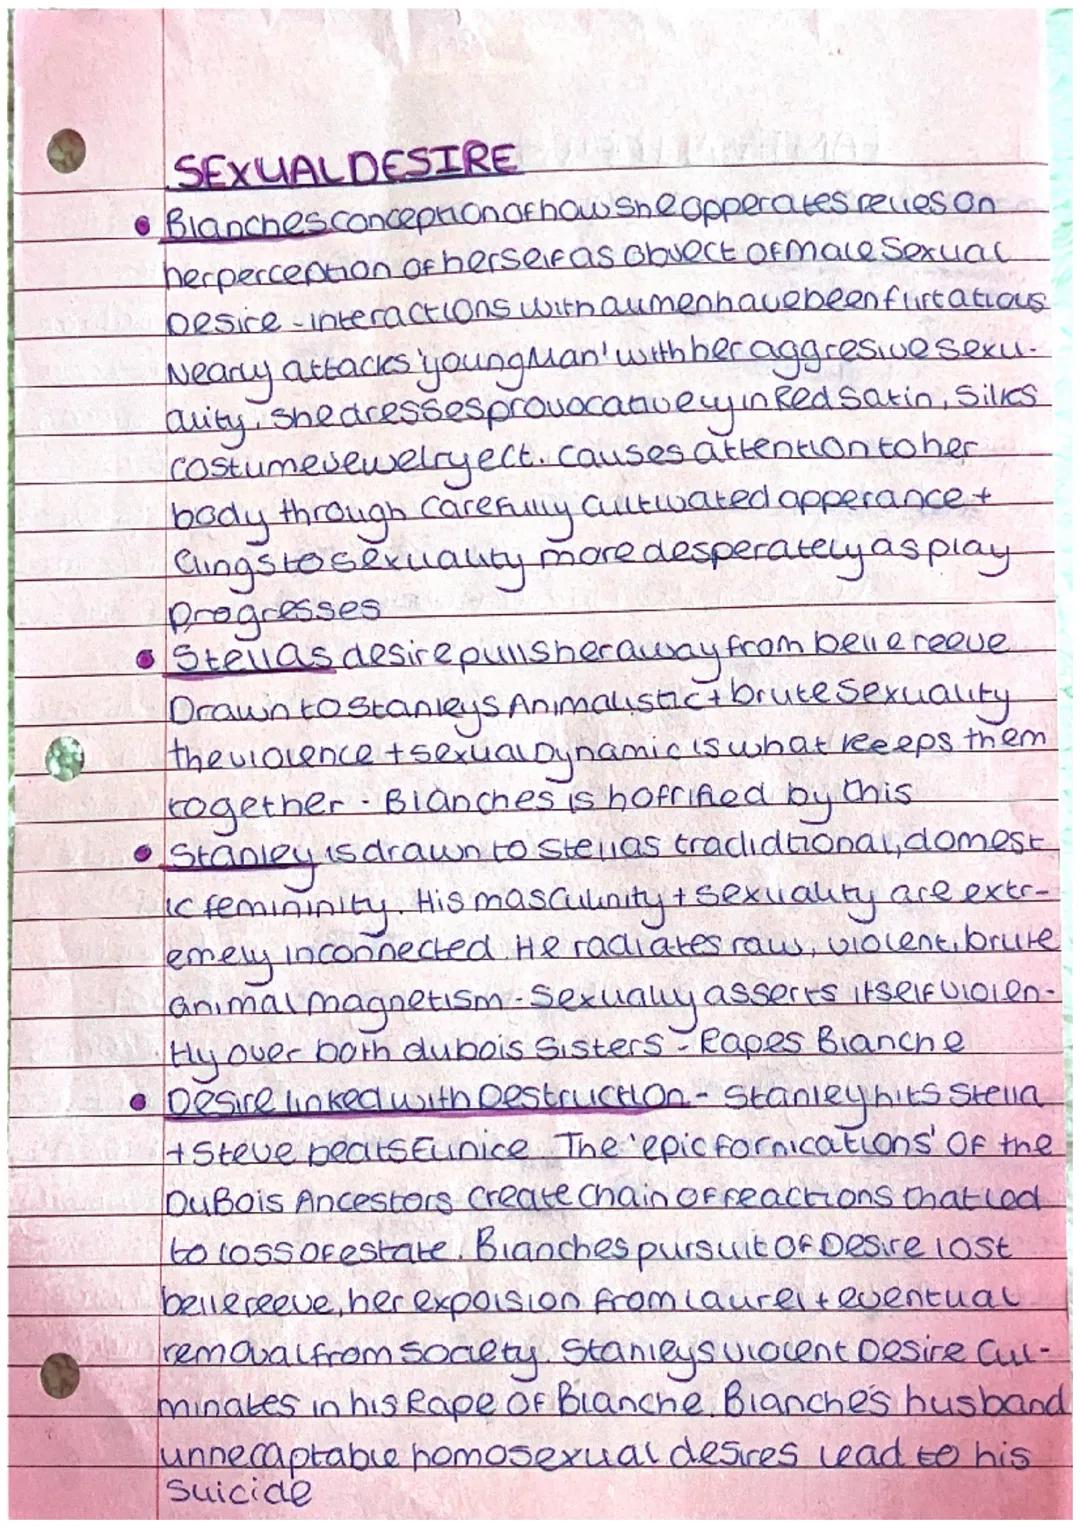 SEXUAL DESIRE
Blanches conception of how she opperates relies on
her perception of herself as Object of male Sexual
Desire - interactions with all men have been flirtatious
Nearly attacks 'young Man' with her aggresive sexu-
ality, she dresses provocatively in Red Satin, Silks
costume jewelry ect. causes attention to her
body through carefully cultivated apperance +
Clings to sexuality more desperately as play
progresses
Stellas desire pulls her away from belle reeve
Drawn to Stanleys Animalistic + brute Sexuality
the violence + sexual Dynamic is what keeeps them
together - Blanches is horrified by this
Stanley is drawn to stellas tradidtional, domest
ic femininity. His masculinity + sexuality are extr-
emely inconnected. He radiates raw, violent, brute
animal magnetism - Sexually asserts itself violen-
tly over both dubois Sisters - Rapes Blanche
Desire linked with Destruction - Stanley hits Stella
+ Steve beats Eunice. The 'epic fornications' Of the
DuBois Ancestors create chain of reactions that led
to loss of estate. Blanches pursuit Of Desire lost
belle reeve, her expolsion from laurel + eventual
removal from society. Stanleys violent Desire cul-
minates in his Rape Of Blanche. Blanche's husband
unnecaptable homosexual desires lead to his
suicide